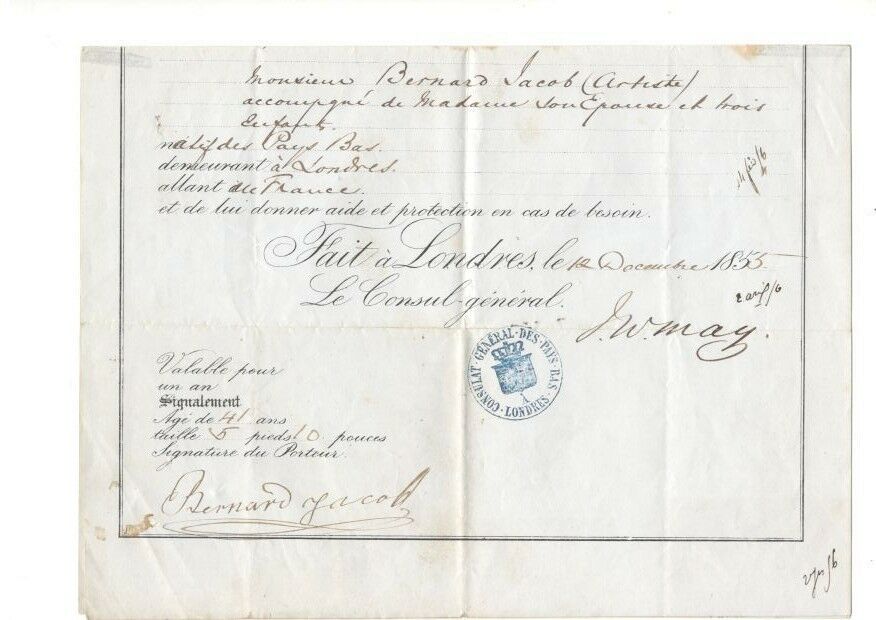 Monsieur Bernard Jacob (Artiste)
accompgné de Madame son Epouse et trois
Enfants.
natif des Pays Bas.
demeurant à Londres.
allant en France.
et de lui donner aide et protection en cas de besoin.
Fait à Londres, le 12 Decembre 1855
Le Consul-général.
J. W. May.
CONSULAT GÉNÉRAL DES PAYS-BAS
A
LONDRES
Valable pour
un an
Signalement
Agé de 41 ans
taille 5 pieds 10 pouces
Signature du Porteur.
Bernard Jacob